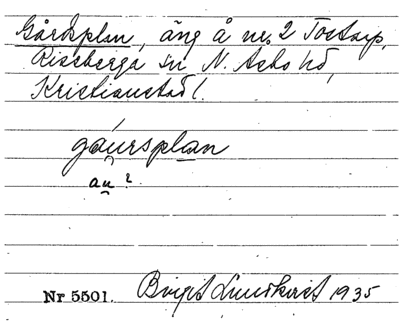 Gårdsplan, äng å nr 2 Tostarp,
Riseberga sn N. Åsbo hd,
Kristianstad l.
gáursplan
au?
Nr 5501. Birgit Lundkvist 1935